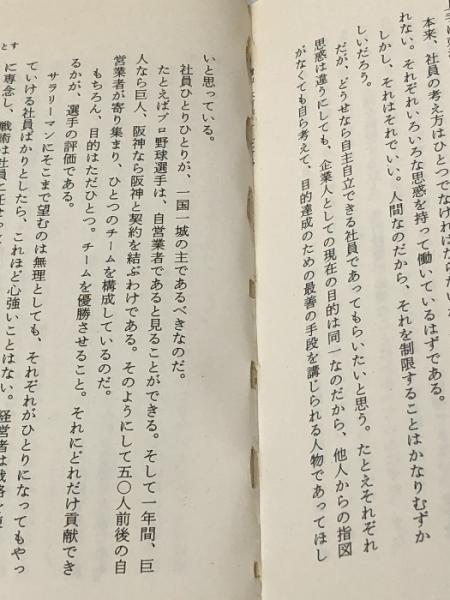 本来、社員の考え方はひとつでなければならない
れない。それぞれいろいろな思惑を持って働いているはずである。
しかし、それはそれでいい。人間なのだから、それを制限することはかなりむずか
しいだろう。
だが、どうせなら自主自立できる社員であってもらいたいと思う。たとえそれぞれ
思惑は違うにしても、企業人としての現在の目的は同一なのだから、他人からの指図
がなくても自ら考えて、目的達成のための最善の手段を講じられる人物であってほし
いと思っている。
社員ひとりひとりが、一国一城の主であるべきなのだ。
たとえばプロ野球選手は、自営業者であると見ることができる。そして一年間、巨
人なら巨人、阪神なら阪神と契約を結ぶわけである。そのようにして五〇人前後の自
営業者が寄り集まり、ひとつのチームを構成しているのだ。
もちろん、目的はただひとつ。チームを優勝させること。それにどれだけ貢献でき
るかが、選手の評価である。
サラリーマンにそこまで望むのは無理としても、それぞれがひとりになってもやっ
ていける社員ばかりとしたら、これほど心強いことはない。経営者は戦略
に専念し、戦術は社員に任せ
とす